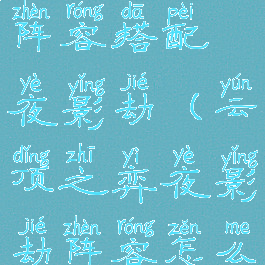 zhèn róng dā pèi
阵容搭配
yè yǐng jié yún
夜影劫(云
dǐng zhī yì yè yǐng
顶之弈夜影
jié zhèn róng zěn me
劫阵容怎么